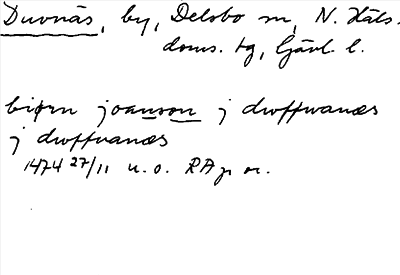 Duvnäs, by, Delsbo sn, N. Häls.
doms. tg, Gävl. l.
biørn joanson j dwffwanæs
j dwffvanæs
1474 27/11 u.o. RAp or.